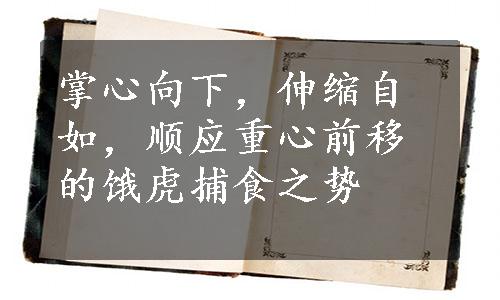 掌心向下，伸缩自
如，顺应重心前移
的饿虎捕食之势